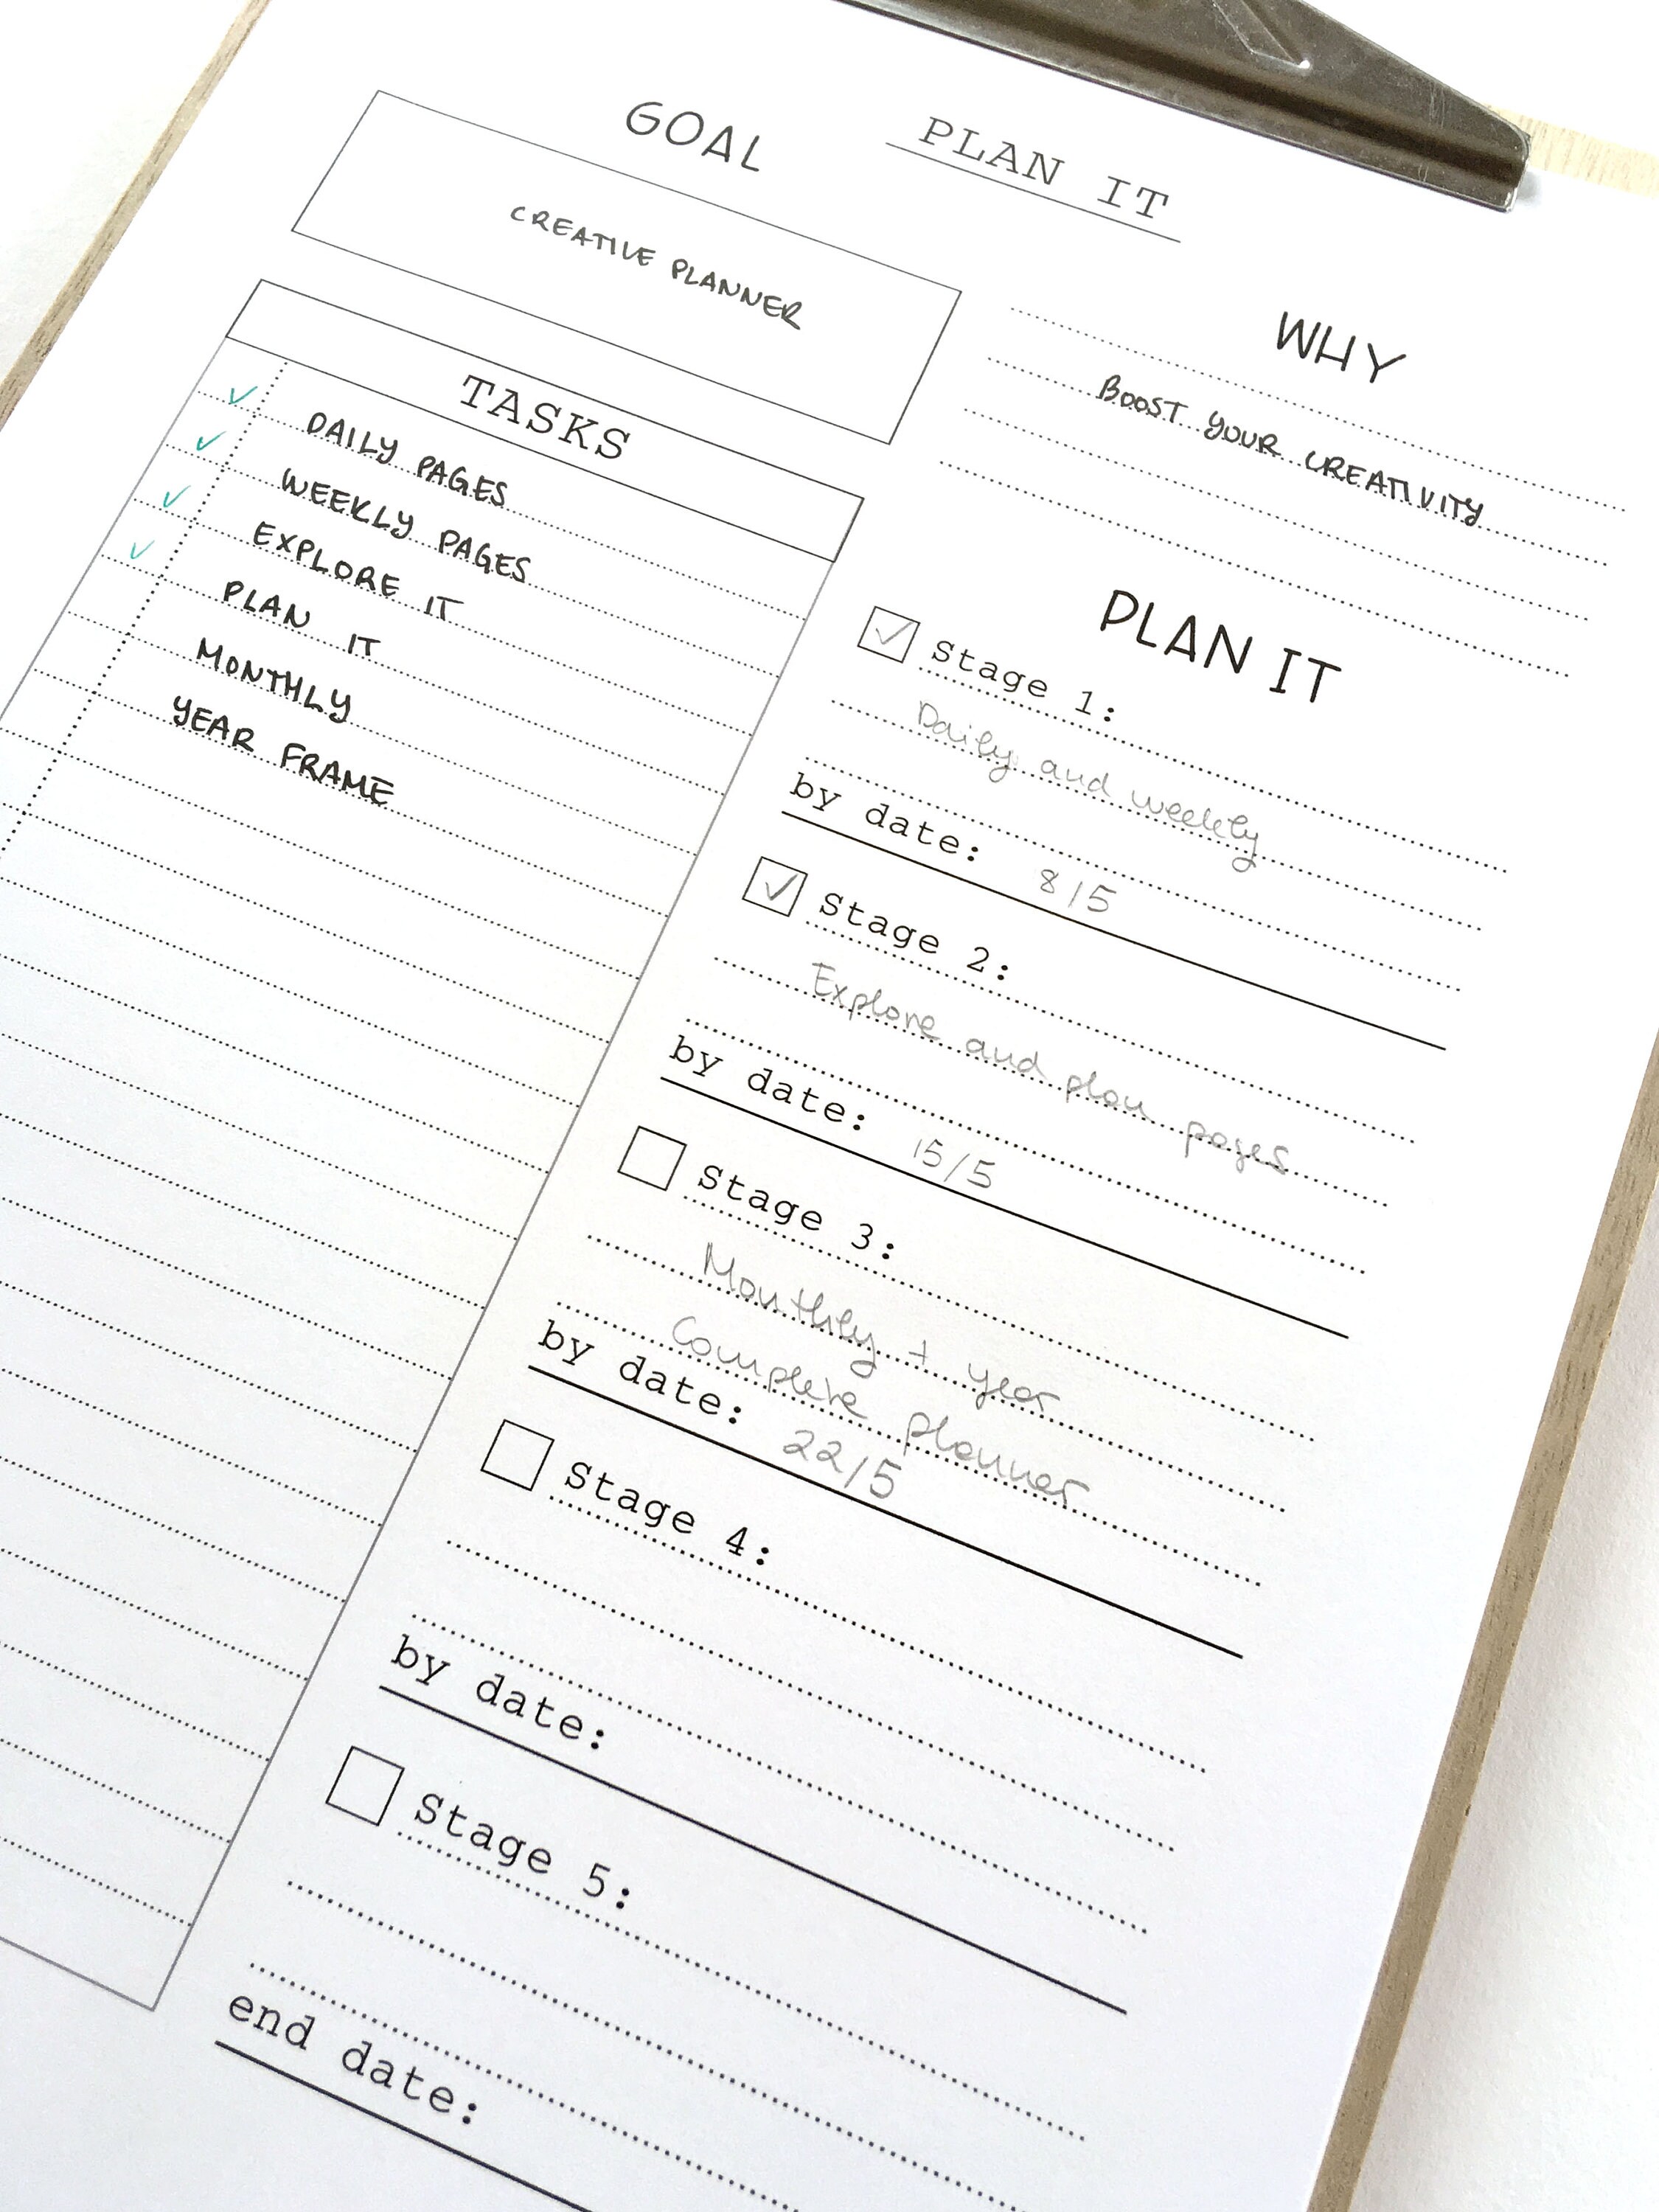 PLAN IT
GOAL
CREATIVE PLANNER
TASKS
DAILY PAGES
WEEKLY PAGES
EXPLORE IT
PLAN IT
MONTHLY
YEAR FRAME
WHY
BOOST YOUR CREATIVITY
PLAN IT
Stage 1:
Daily and weekly
by date: 8/5
Stage 2:
Explore and plan pages
by date: 15/5
Stage 3:
Monthly + year
Complete planner
by date: 22/5
Stage 4:
by date:
Stage 5:
end date: